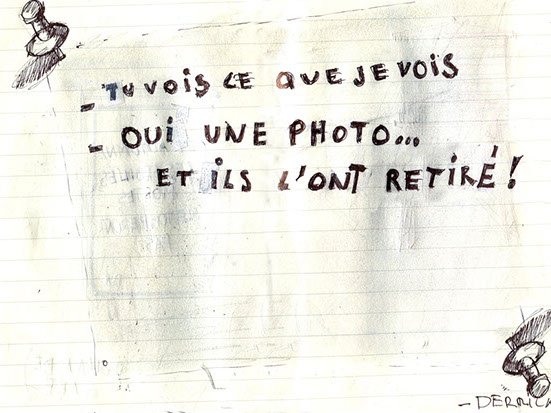 - TU VOIS CE QUE JE VOIS
- OUI UNE PHOTO...
ET ILS L'ONT RETIRÉ!